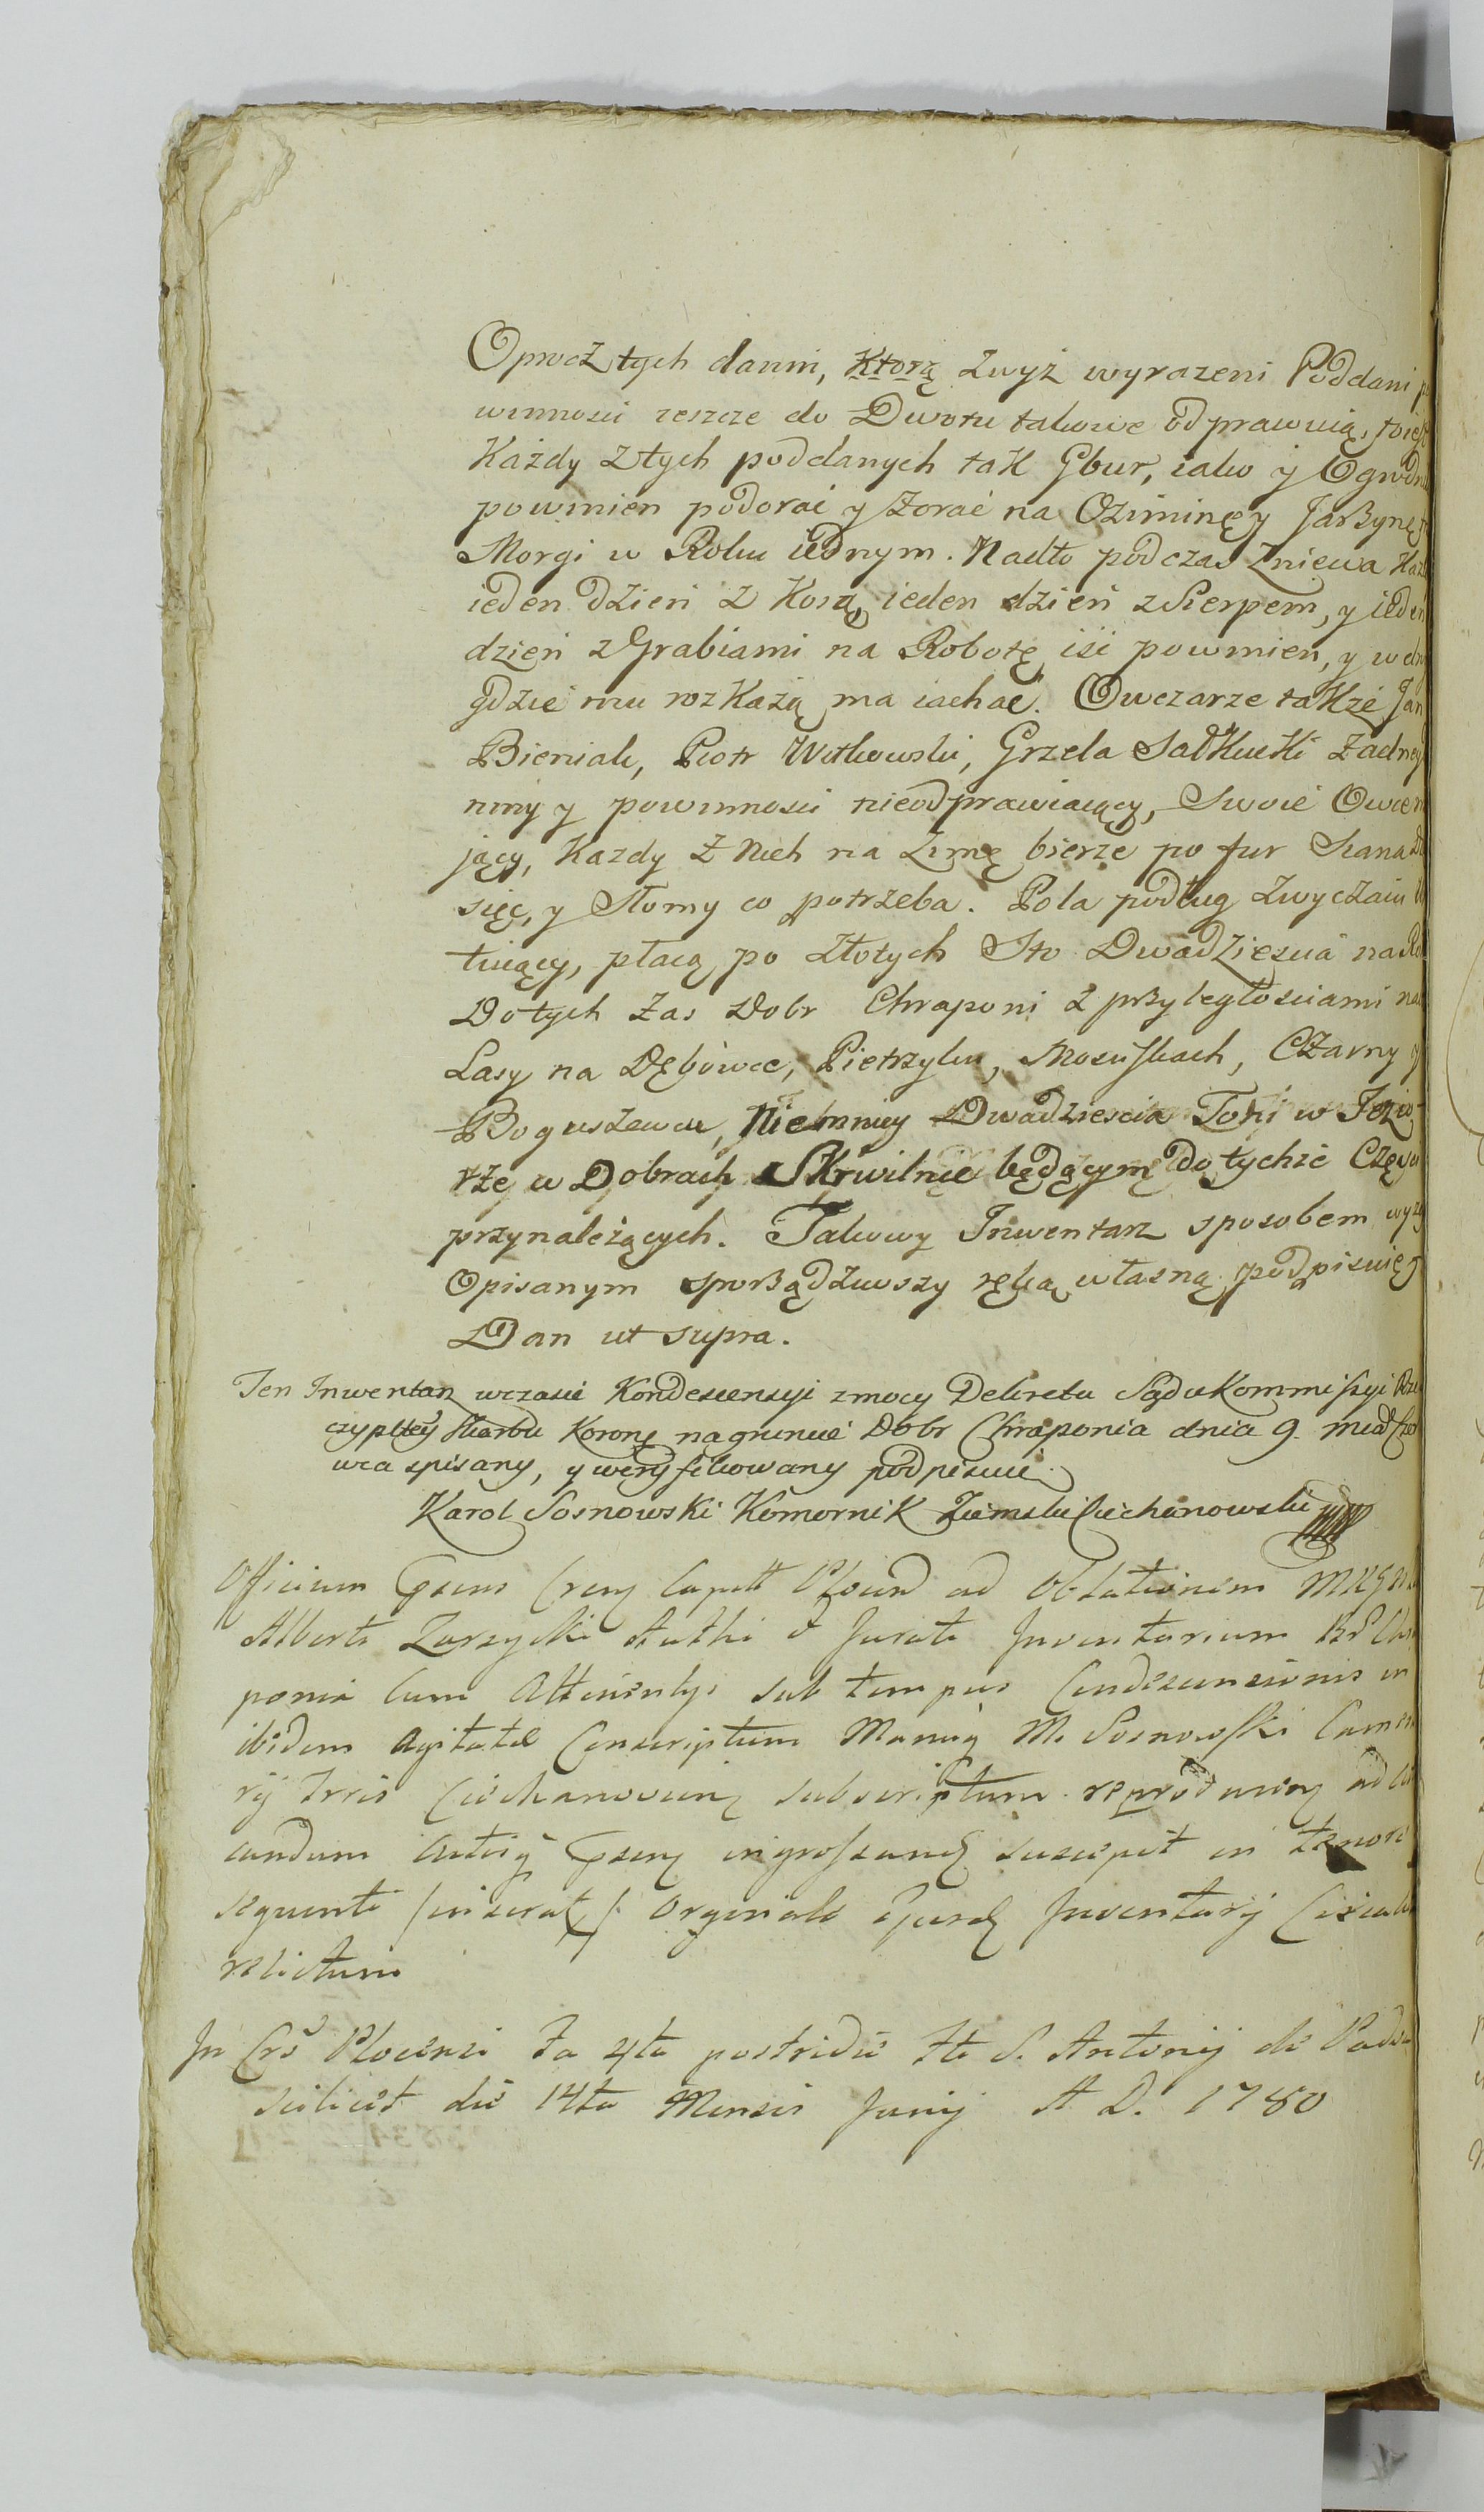 Oprocz tych danin, Ktorą Zwyż wyrazeni Poddani po
winnosci ieszcze do Dworu takowe odprawuią, toiest
Każdy Ztych poddanych tak Gbur, iako y Ogrodn
powinien podorać y Zorać na Oziminę y Jarzynę
Morgi w Roku iednym. Nadto podczas Zniewa Każ
ieden dzień z Kosą, ieden dzień z Sierpem, y ieden
dzień z Grabiami na Robotę iść powinien, y w dro
gdzie mu rozKażą ma iachać. Owczarze taKże Jan
Bieniak, Piotr Witkowski, Grzela Zadney
niny y powinnosci nieodprawiaiący, Swoie Owce m
jący, Każdy Z Nich na Zimę bierze po fur Siana
sięc, y Słomy co potrzeba. Pola podług Zwyczaiu
tuiący, płacą po Złotych Sto Dwadziescia na Ro
Do tych Zas Dobr Chraponi z przyległosciami
Lasy na Dębówce, Pietrzyku, Czarny
Boguszewcu, Niemniey Dwadziescia Toni w Jezio
rze w Dobrach Skrwilnie będącym do tychże Częśc
przynależących. Takowy Inwentarz sposobem wyzy
Opisanym sporządziwszy ręką własną podpisuię
Dan ut supra.
Ten Inwentarz wczasie Kondescensyi zmocy Dekretu Sądu Kommissyi Rze
czypltey Skarbu Korony nagruncie Dobr Chraponia dnia 9. mca Czer
wca spisany, y weryfikowany podpisuię.
Karol Sosnowski Komornik Ziemski Ciechanowski
Officium ad Oblationem
Alberti Zarzycki Inventarium
ponia Cum Attinentys sub tempus Condescensionis in
ibidem agitatae Conscriptum Manuq M. Sosnowski Came
rij Trris Ciechanovien subscriptum reproducen ad
candum ingrossand suscepit in tenore
sequenti Orginale Ejusd Inventarij
relictum
In Crō Plocensi Fa 4ta postridie S. Antonij de Padu
scilicet die 14ta Mensis Junij A D. 1780